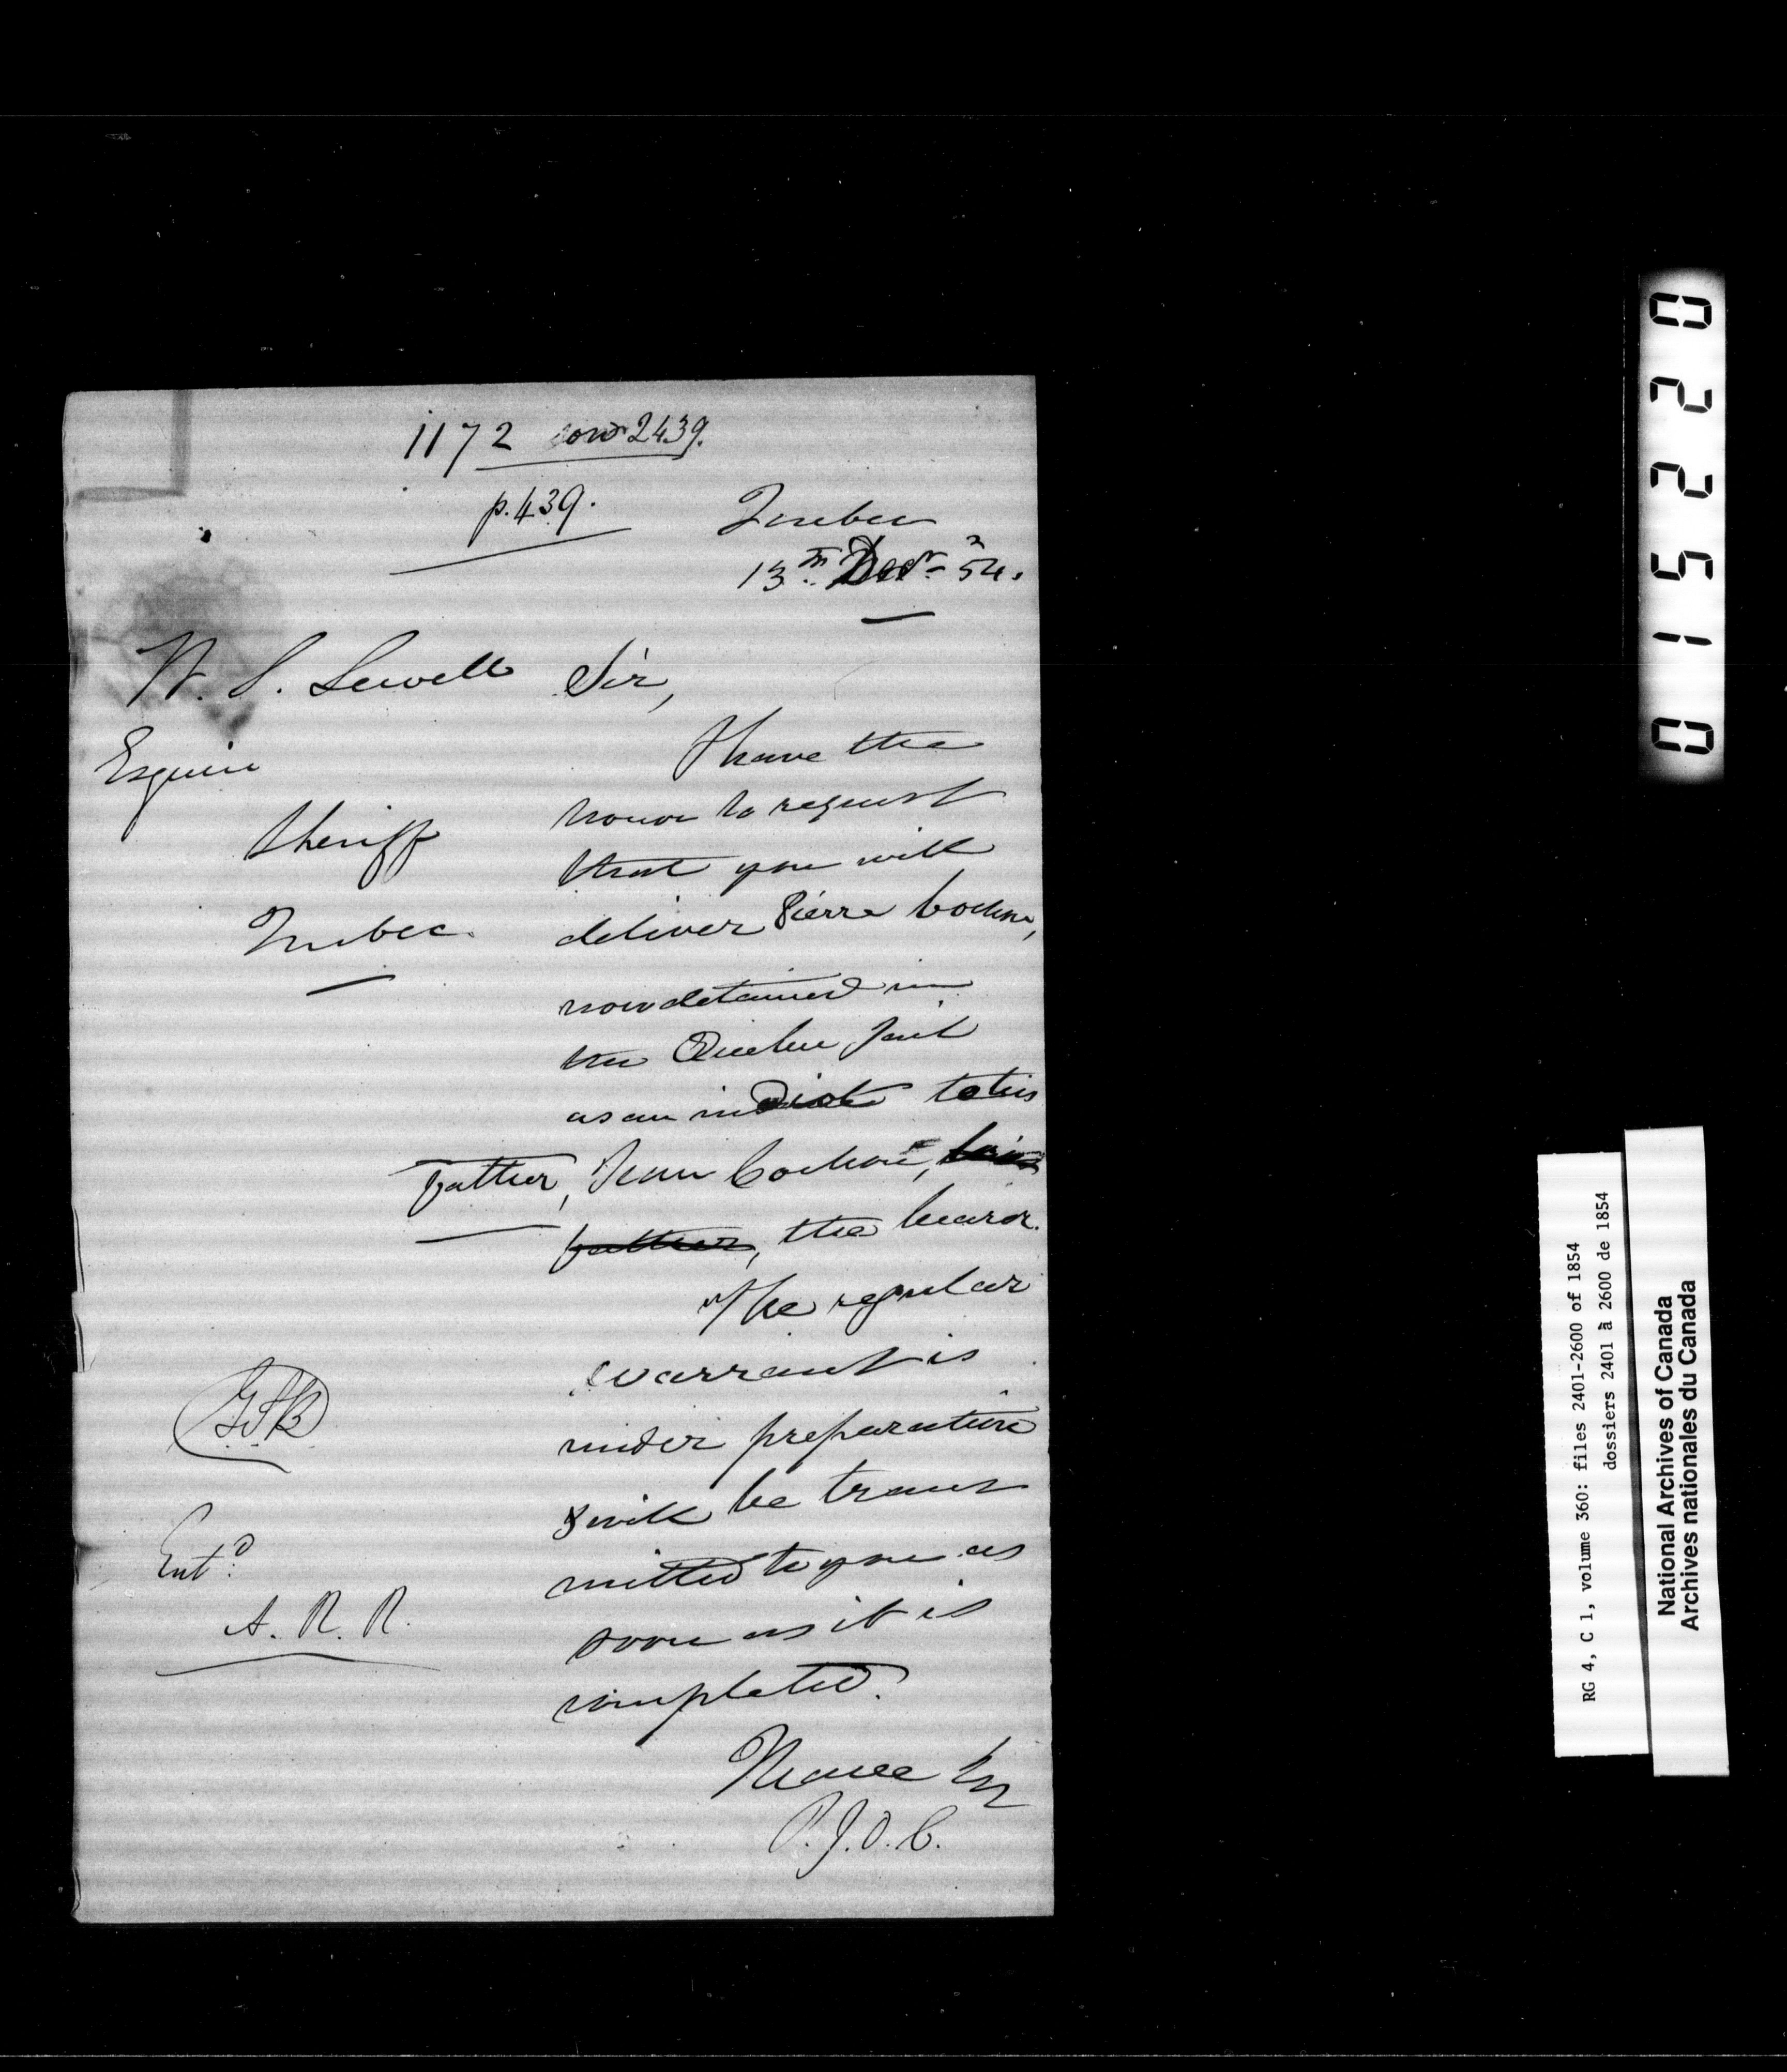 1172 on 2439.
p. 439.
Quebec
13th Decr 54.
W. S. Sewell
Esquire
Sheriff
Quebec.
Sir,
I have the
honor to request
that you will
deliver Pierre
now detained in
the Quebec Jail
as an idiot to his
father, Jean his
father, the bearer.
The regular
warrant is
under preparation
& will be trans
mitted to you as
soon as it is
completed.
I have &c
P.J.O.C.
Entd
A. R. R.
015220
RG 4, C 1, volume 360: files 2401-2600 of 1854
dossiers 2401 à 2600 de 1854
National Archives of Canada
Archives nationales du Canada